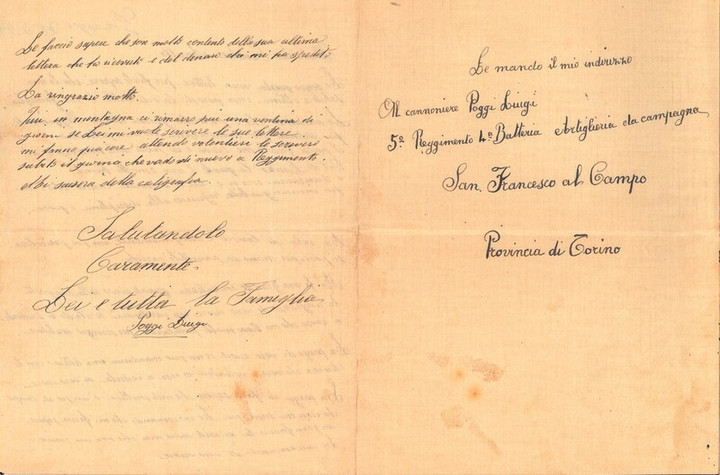 Le faccio sapere che son molto contento della sua ultima
lettera che ho ricevuti e del denaro che mi ha spedito
La ringrazio molto.
Qui, in montagna ci rimarrò più una ventina di
giorni se Lei mi vuole scrivere le sue lettere
mi fanno piacere attendi volentieri le scriverò
subito il giorno che vado di nuovo a Reggimento.
Mi scuserà della caligrafia
Salutandolo
Caramente.
Lei e tutta la Famiglia
Poggi Luigi
Le mando il mio indirizzo
Al cannoniere Poggi Luigi
5º Reggimento 4ª Batteria Artiglieria da campagna
San Francesco al Campo
Provincia di Torino